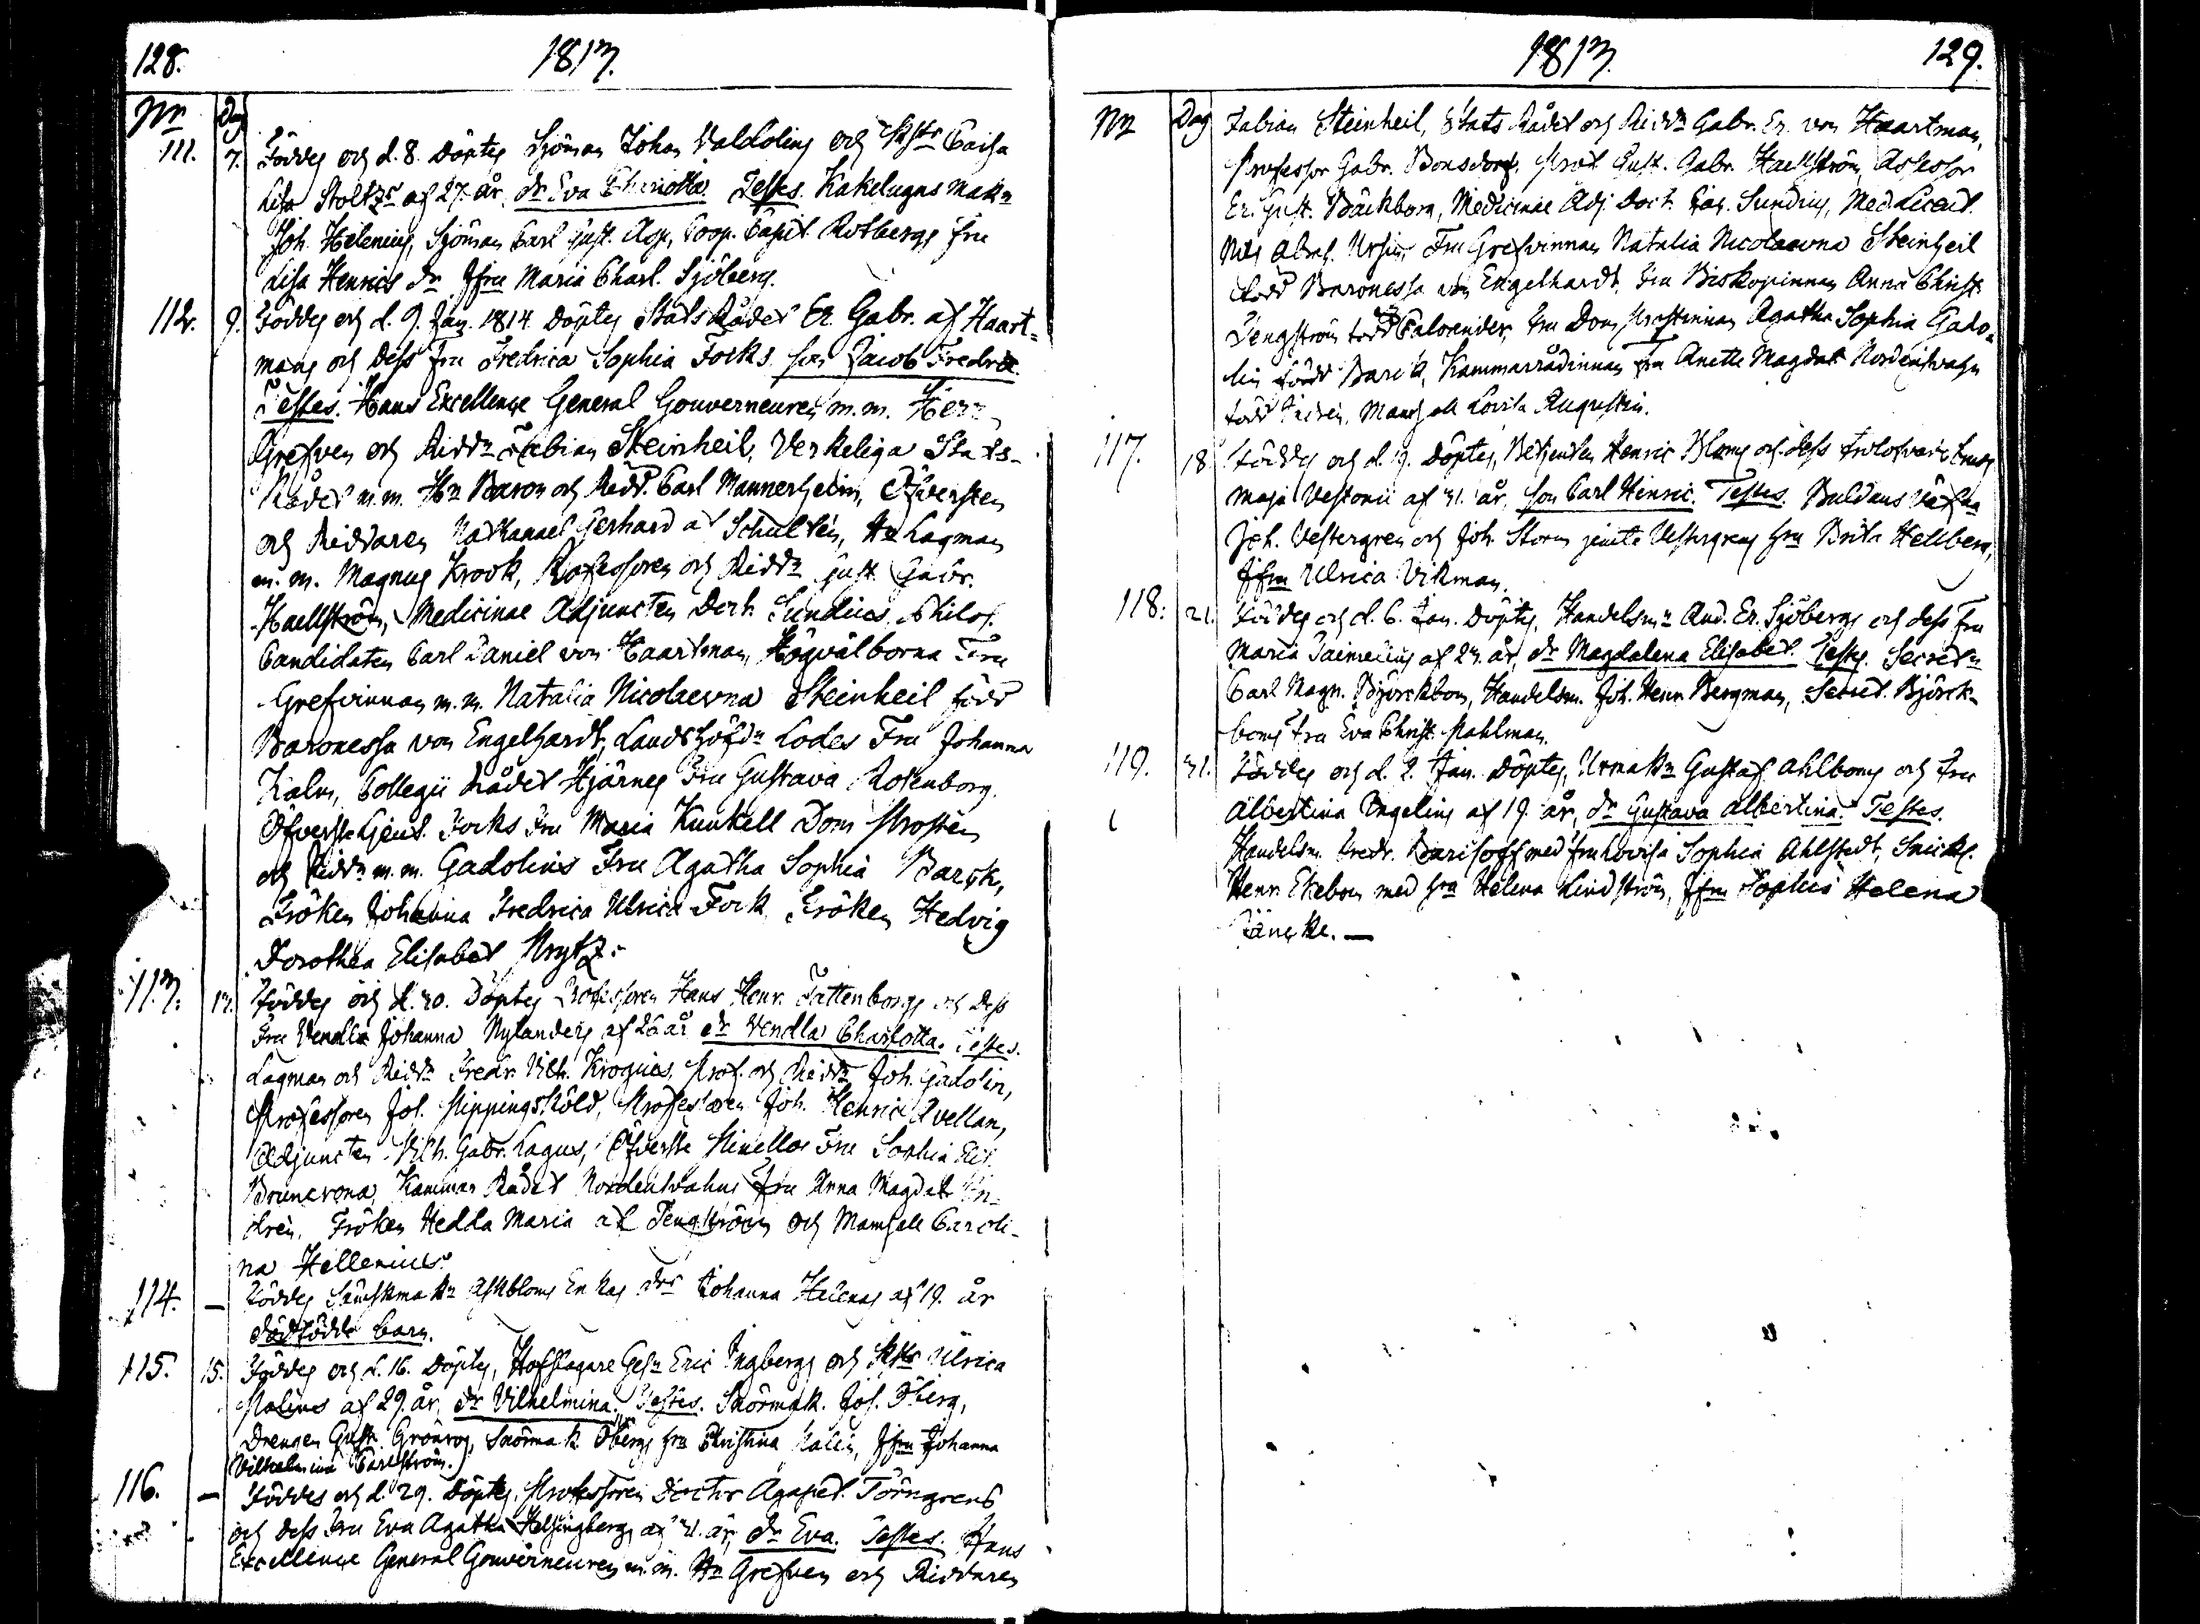 128. 1813.
Nr Dag
111. 7. Föddes och d. 8. döptes Sjöman Johan och Hstr Caisa
Lisa Stoltzs af 27. år, dr Eva Charlotta. Testes. Kakelugns Makr
Joh. Helenius, Sjöman Carl Gust. Asp, Coop. Capit. Rotbergs fru
Lisa Henrics dr Jfru Maria Charl. Sjöberg.
112. 9. Föddes och d. 9. Jan. 1814. Döptes StatsRådet Er. Gabr. af Haart-
mans och Dess Fru Fredrica Sophia Focks. son Jacob Fredric
Testes. Hans Excellence General Gouverneuren m.m. Herr
Grefven och Riddn Fabian Steinheil, Verkeliga Stats-
Rådet m.m. Hr Baron och Ridd. Carl Mannerheim, Öfversten
och Riddaren Nathanael Gerhard af Schultén, Hr Lagman
m.m. Magnus Krook, Professoren och Riddn Gust. Gabr.
Haellström, Medicinae Adjuncten Doct. Sundius, Philos.
Candidaten Carl Daniel von Haartman, Högvälborna Fru
Grefvinnan m.m. Natalia Nicolaevna Steinheil född
Baronessa von Engelhardt, Landshöfdn Lodes Fru Johanna
Kalm, Collegii Rådet Hjärnes Fru Gustava Rotenborg.
Öfverste Lieut. Focks Fru Maria Kunkell Dom Prosten
och Riddn m.m. Gadolins Fru Agatha Sophia Barck,
Fröken Johanna Fredrica Ulrica Fock, Fröken Hedvig
Dorothea Elisabet Prytz.
113. 13. Föddes och d. 30. Döptes Professoren Hans Henr. Fattenborgs och Dess
Fru Vendla Johanna Nylanders af 26 år dr Vendla Charlotta. Testes.
Lagman och Riddn Fredr. Vilh. Krogius, Prof. och Riddn Joh. Gadolin,
Professoren Jos. Pippingsköld, Professoren Joh. Henric Avellan,
Adjuncten Vilh. Gabr. Lagus, Öfverste Fru Sophia Elis.
Kammar Rådet Nordensvahns Fru Anna Magdal. In-
drén, Fröken Hedda Maria af Tengström och Mamsell Caroli-
na Hellenius.
114. — Föddes Enkas drs Johanna Helenas af 19. år
dödfödde barn.
115. 15. Föddes och d. 16. Döptes, Hofslagare Gesn Eric Ingbergs och Hstr Ulrica
Malins af 29. år, dr Vilhelmina. Testes. Snörmak. Jos. Öberg,
Drengen Gust. Grönros, Snörmak Öbergs fru Christina Malin, Jfru Johanna
Vilhelmina Carlström.
116. — Föddes och d. 29. Döptes, Professoren Doctor Agapet. Törngrens
och dess Fru Eva Agatha Helsingbergs af 31. år, dr Eva. Testes. Hans
Excellence General Gouverneuren m.m. Hr Grefven och Riddaren
1813. 129.
Nr Dag Fabian Steinheil, Stats Rådet och Riddn Gabr. Er. von Haartman,
Professor Gabr. Bonsdorf, Prof. Gust. Gabr. Haellström, Assessor
Er. Gust. Bäckborg, Medicinae Adj. Doct. Sundius, Med. Licent.
Nils Abrah. Ursin, Fru Grefvinnan Natalia Nicolaevna Steinheil
född Baronessa von Engelhardt, Fru Biskopinnan Anna Christ.
Tengström född Caloander, Fru Dom Prostinnan Agatha Sophia Gado-
lin född Barck, Kammarrådinnan Fru Anette Magdal. Nordensvahn
född Indrén, Mamsell Lovisa Augustin.
117. 18 Föddes och d. 19. Döptes, Betjenten Henric Bloms och dess trolofvade
Maja Vestonii af 31. år, son Carl Henric. Testes.
Joh. Vestergren och Joh. Storm jemte Vestergrens hru Brita Hellberg,
Jfru Ulrica Vikman.
118: 21. Föddes och d. 6. Jan. Döptes, Handelsmn And. Er. Sjöbergs och dess fru
Maria Taimelins af 23. år, dr Magdalena Elisabet. Testes. Secretn
Carl Magn. Björckbom, Handelsm. Joh. Henr. Bergman, Secret. Björck-
boms fru Eva Christ. Mahlman.
119. 31. Föddes och d. 2. Jan. Döptes, Urmakn Gustaf Ahlboms och Fru
Albertina Engelins af 19. år, dr Gustava Albertina. Testes.
Handelsm. Fredr. Barisoff med fru Lovisa Sophia Ahlstedt, Snick.
Henr. Ekebom med hru Helena Lindström, Jfru Sophia Helena
Jäncke. —